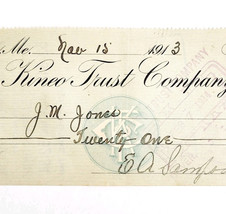 Me. Nov 15 1913
Kineo Trust Company
J. M. Jones
Twenty One
E A